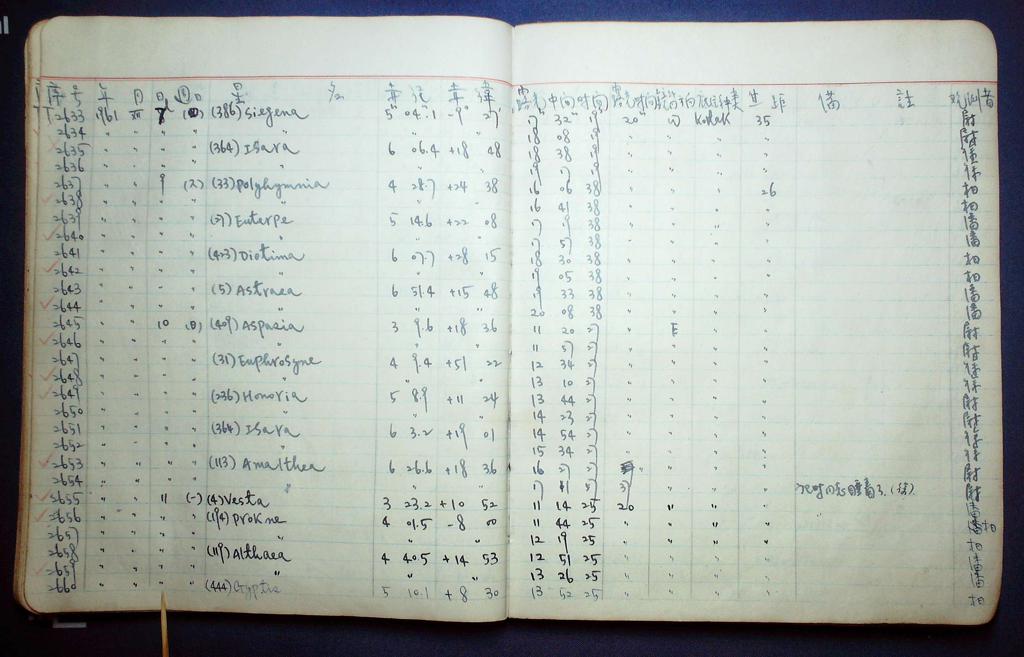 序号 年 月 日 週日 星 名 赤 经 赤 纬 露光中间时间 露光时间 底片种类 焦距 备 註 观测者
2633 1961 XII 7 (386) Siegena 5 04.1 -9 27 17 32 19 20 W Kodak 35
2634 " " " " " " 18 08 19 " " " "
2635 " " " " (364) Isara 6 06.4 +18 48 18 38 19 " " " "
2636 " " " " " " 19 17 19 " " " "
2637 " " 9 (六) (33) Polyhymnia 4 28.7 +24 38 16 06 38 " " " 26
2638 " " " " " " 16 41 38 " " " "
2639 " " " " (27) Euterpe 5 14.6 +22 08 17 19 38 " " " "
2640 " " " " " " 17 57 38 " " " "
2641 " " " " (423) Diotima 6 07.7 +28 15 18 30 38 " " " "
2642 " " " " " " 19 05 38 " " " "
2643 " " " " (5) Astraea 6 51.4 +15 48 19 33 38 " " " "
2644 " " " " " " 20 08 38 " " " "
2645 " " 10 (日) (409) Aspasia 3 9.6 +18 36 11 20 27 " E " "
2646 " " " " " " 11 57 27 " " " "
2647 " " " " (31) Euphrosyne 4 9.4 +51 22 12 34 27 " " " "
2648 " " " " " " 13 10 27 " " " "
2649 " " " " (236) Honoria 5 8.9 +11 24 13 44 27 " " " "
2650 " " " " " " 14 23 27 " " " "
2651 " " " " (364) Isara 6 3.2 +19 01 14 54 27 " " " "
2652 " " " " " " 15 34 27 " " " "
2653 " " " " (113) Amalthea 6 26.6 +18 36 16 27 27 " " " "
2654 " " " " " " 17 41 27 37 " " "
2655 " " 11 (一) (4) Vesta 3 23.2 +10 52 11 14 25 20 " " "
2656 " " " " (194) Prokne 4 01.5 -8 00 11 44 25 " " " "
2657 " " " " " " 12 19 25 " " " "
2658 " " " " (119) Althaea 4 40.5 +14 53 12 51 25 " " " "
2659 " " " " " " 13 26 25 " " " "
2660 " " " " (444) Gyptis 5 10.1 +8 30 13 52 25 " " " "